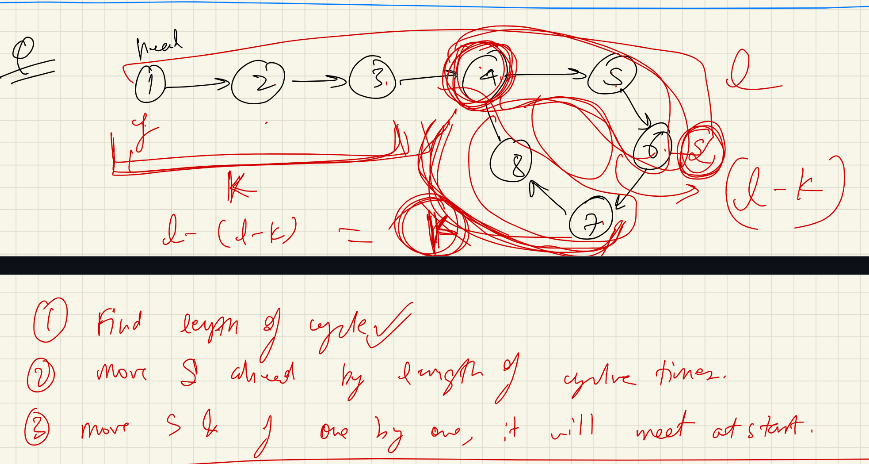 Q
head
1 2 3 4 5
l
f
6 S
8
K
(l-k)
7
l-(l-k) = K
① Find length of cycle ✓
② move S ahead by length of cycle times.
③ move S & f one by one, it will meet at start.